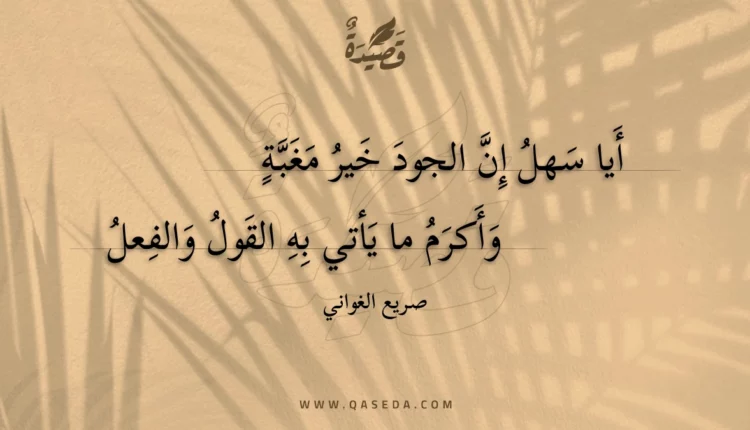 قَصِيْدَةٌ
أَيا سَهلُ إِنَّ الجودَ خَيرُ مَغَبَّةٍ
وَأَكرَمُ ما يَأتي بِهِ القَولُ وَالفِعلُ
صريع الغواني
WWW.QASEDA.COM